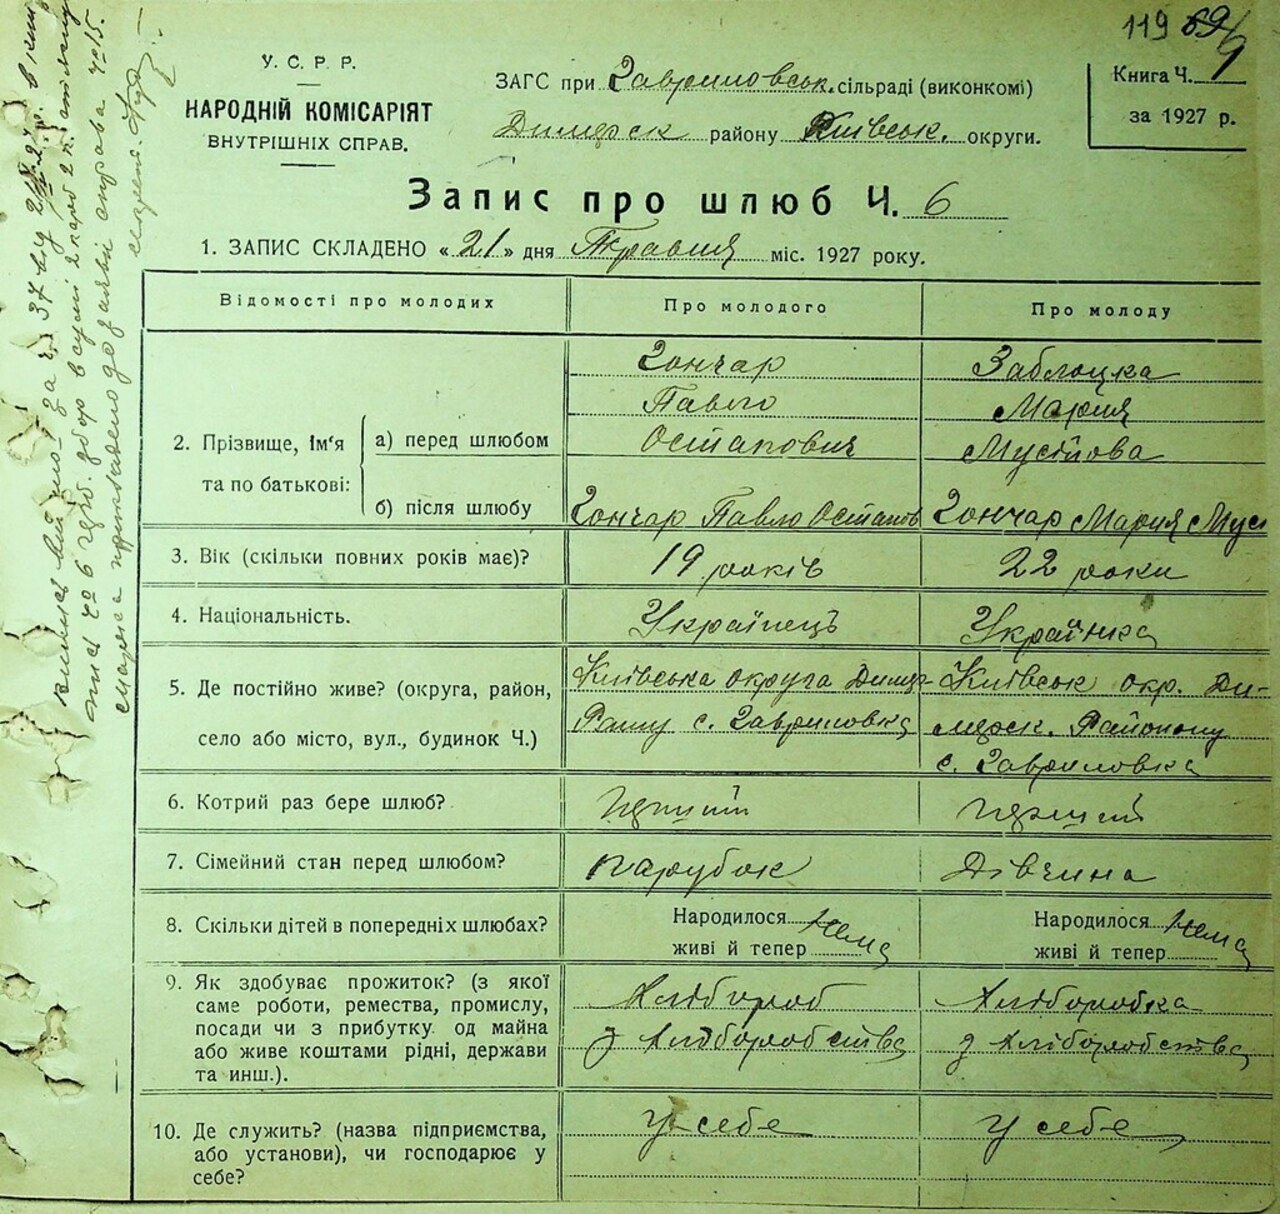 119 69
У. С. Р. Р.
НАРОДНІЙ КОМІСАРІЯТ
ВНУТРІШНІХ СПРАВ.
ЗАГС при Гавриловськ. сільраді (виконкомі)
Димерск району Київськ. округи.
Книга Ч.
за 1927 р.
Запис про шлюб Ч. 6
1. ЗАПИС СКЛАДЕНО « 21 » дня Травня міс. 1927 року.
Відомості про молодих Про молодого Про молоду
Гончар Заблоцка
Павло Мария
2. Прізвище, Ім'я а) перед шлюбом Остапович Мусіїова
та по батькові:
б) після шлюбу Гончар Павло Остапов Гончар Мария Мусі
3. Вік (скільки повних років має)? 19 років 22 роки
4. Національність. Українець Українка
5. Де постійно живе? (округа, район, Київська округа Димер- Київськ окр. Ди-
село або місто, вул., будинок Ч.) Райну с. Гавриловка мерск. Районну
с. Гавриловка
6. Котрий раз бере шлюб? перший перший
7. Сімейний стан перед шлюбом? парубок Дівчина
8. Скільки дітей в попередніх шлюбах? Народилося Народилося
живі й тепер Нема живі й тепер Нема
9. Як здобуває прожиток? (з якої
саме роботи, ремества, промислу, Хлібороб Хліборобка
посади чи з прибутку од майна
або живе коштами рідні, держави з Хліборобства з Хліборобства
та инш.).
10. Де служить? (назва підприємства, у себе у себе
або установи), чи господарює у
себе?